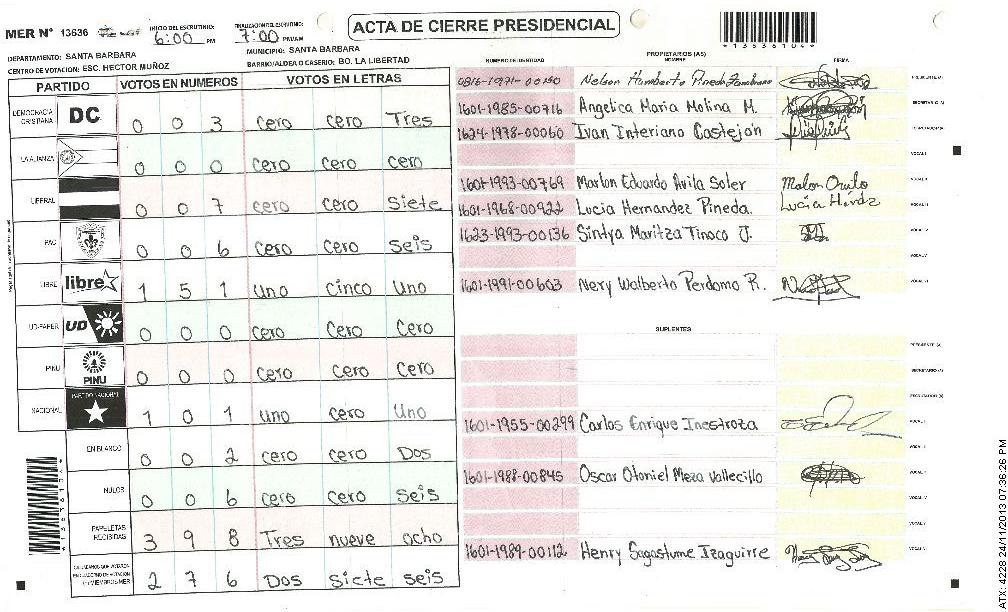 MER N° 13636
INICIO DEL ESCRUTINIO: 6:00 PM
FINALIZACION DEL ESCRUTINIO: 7:00 PM/AM
ACTA DE CIERRE PRESIDENCIAL
*13636104*
DEPARTAMENTO: SANTA BARBARA
MUNICIPIO: SANTA BARBARA
CENTRO DE VOTACION: ESC. HECTOR MUÑOZ
BARRIO/ALDEA O CASERIO: BO. LA LIBERTAD
PARTIDO VOTOS EN NUMEROS VOTOS EN LETRAS
DEMOCRACIA CRISTIANA DC 0 0 3 cero cero Tres
LA ALIANZA 0 0 0 cero cero cero
LIBERAL 0 0 7 cero cero Siete
PAC 0 0 6 cero cero seis
LIBRE libre 1 5 1 uno cinco uno
UD-FAPER UD 0 0 0 cero cero cero
PINU PINU 0 0 0 cero cero cero
NACIONAL PARTIDO NACIONAL 1 0 1 uno cero uno
EN BLANCO 0 0 2 cero cero Dos
NULOS 0 0 6 cero cero seis
PAPELETAS RECIBIDAS 3 9 8 Tres nueve ocho
CIUDADANOS QUE VOTARON EN CUADERNO DE VOTACION (+) MIEMBROS MER 2 7 6 Dos siete seis
PROPIETARIOS (AS)
NUMERO DE IDENTIDAD NOMBRE FIRMA
Nelson Humberto Pineda PRESIDENTE (A)
1601-1985-00716 Angelica Maria Molina M. SECRETARIO (A)
1624-1978-00060 Ivan Interiano Castejon ESCRUTADOR (A)
VOCAL I
1601-1993-00769 Marlon Eduardo Avila Soler VOCAL II
1601-1968-00922 Lucia Hernandez Pineda. VOCAL III
1623-1993-00136 Sintya Maritza Tinoco J. VOCAL IV
VOCAL V
1601-1991-00603 Nery Walberto Perdomo R. VOCAL VI
SUPLENTES
PRESIDENTE (A)
SECRETARIO (A)
ESCRUTADOR (A)
1601-1955-00299 Carlos Enrique Inestroza VOCAL I
VOCAL II
1601-1988-00845 Oscar Otoniel Meza Vallecillo
VOCAL IV
VOCAL V
1601-1989-00112 Henry Sagastume Izaguirre
*13636104*
ATX: 4228 24/11/2013 07:36:26 PM